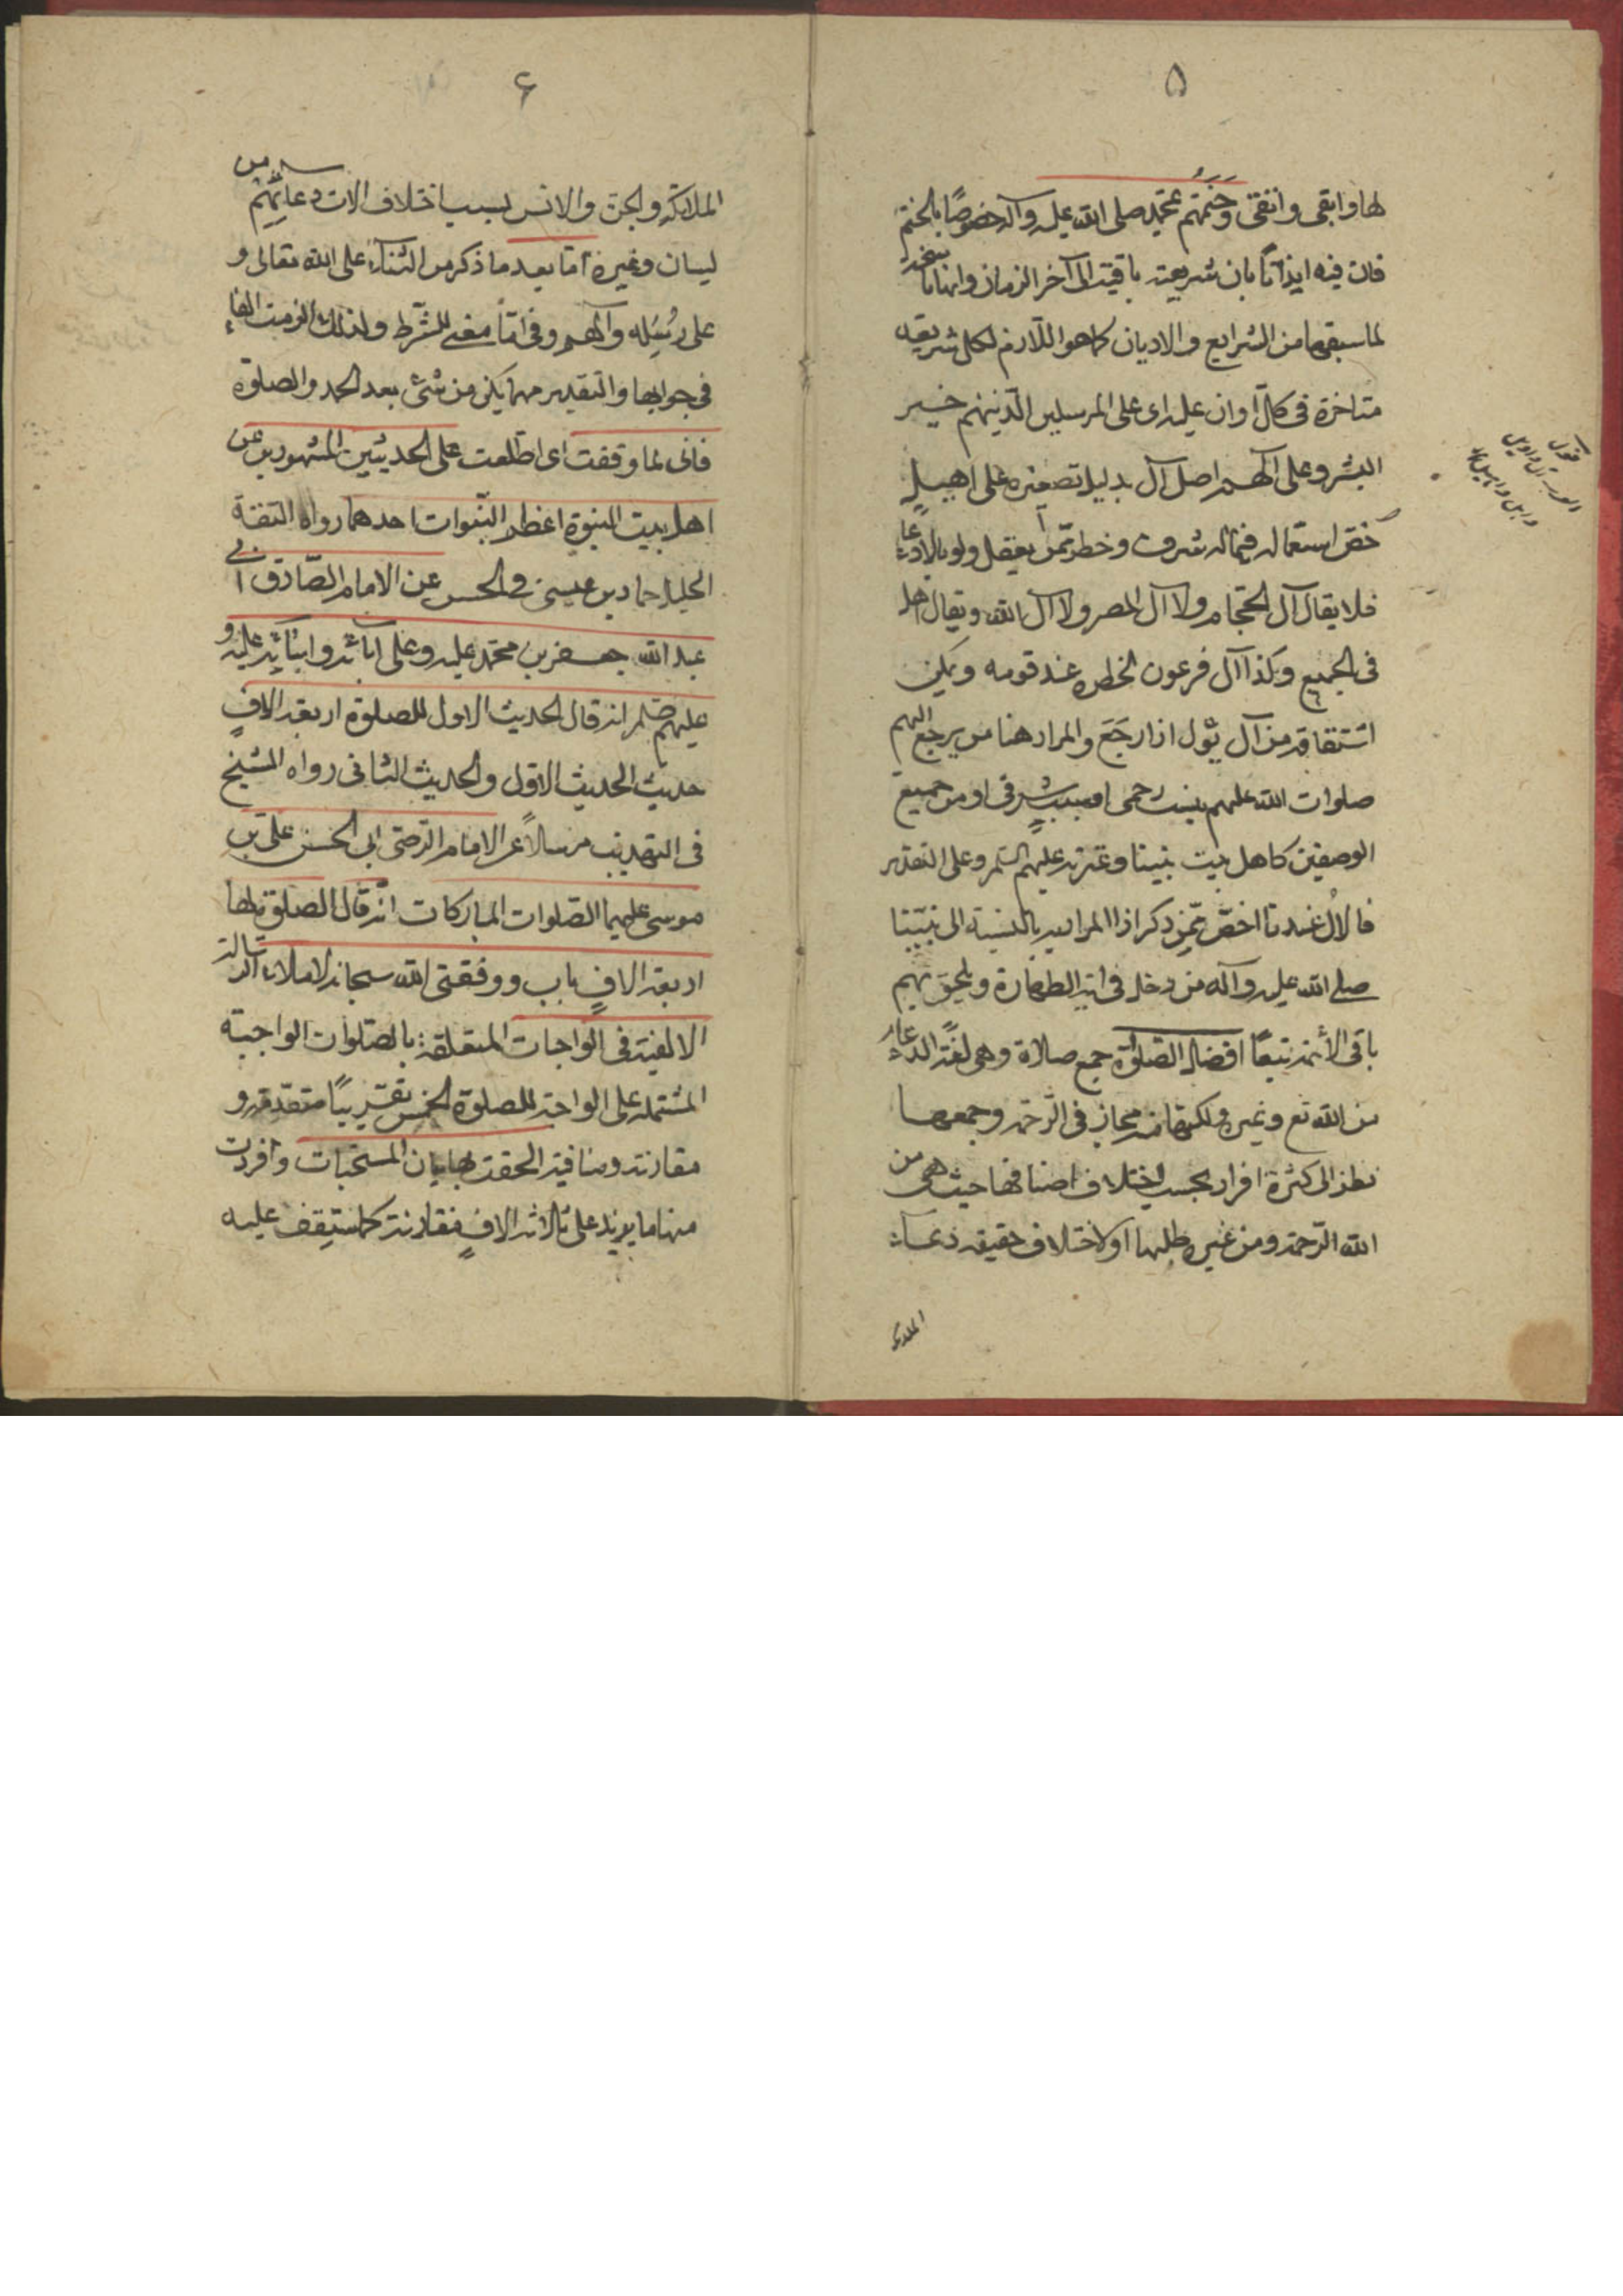 ۵
لها وابقى وانقى وختمهم بمحمد صلى الله عليه وآله خصوصًا بالختم
فان فيه ايذانًا بان شريعته باقية الى آخر الزمان وانها ناسخة
لما سبقها من الشرايع والاديان كما هو اللازم لكل شريعة
متاخرة فى كل اوان عليه اى على المرسلين الذينهم خير
البشر وعلى آلهم اصل آل بدليل تصغيره على اهيل
خص استعماله فيما له شرف وخطر ممن يعقل ولو بالادعاء
فلا يقال آل الحجام ولا آل المصر ولا آل الله ويقال اهل
فى الجميع وكذا آل فرعون لخطره عند قومه ويمكن
اشتقاقه من آل يئول اذا رجَعَ والمراد هنا من يرجع اليهم
صلوات الله عليهم بنسب رحمى او بسبب شرفى او من جميع
الوصفين كاهل بيت نبينا وعترته عليهم السلم وعلى التقدير
فالاٰل عندنا اخصّ ممن ذكر اذا المراد به بالنسبة الى نبيّنا
صلى الله عليه وآله من دخل فى اية الطهارة ويلحق بهم
باقى الأئمة تبعًا افضل الصلوات جمع صلاة وهى لغةً الدعاء
من الله تع وغيره ولكنها منه مجاز فى الرحمة وجمعها
نظرا الى كثرة افراد بحسب اختلاف اصنافها حيث هى من
الله الرحمة ومن غيره طلبها او لاختلاف حقيقة دعاء
الملائكة
۶
الملائكة والجن والانس بسبب اختلاف الات دعائهم من
لسان وغيره امّا بعد ما ذكر من الثناء على الله تعالى و
على رُسُله وآلهم وفى امّا معنى للشرط ولذلك الزمت الفاء
فى جوابها والتقدير مهما يكن من شئ بعد الحمد والصلوة
فانى لما وقفت اى اطلعت على الحديثين المشهورين عن
اهل بيت النبوة اعظم النّبوات احدهما رواه الثقة
الجليل حماد بن عيسى فى الحسن عن الامام الصّادق ابى
عبد الله جعفر بن محمّد عليه وعلى آبائه وابنائه عليه و
عليهم انه قال الحديث الاول للصلوة اربعة الافٍ
حديث الحديث الاول والحديث الثانى رواه الشيخ
فى التهذيب مرسلاً عن الامام الرّضى ابى الحسن على بن
موسى عليهما الصّلوات المباركات انّه قال الصلوة لها
اربعة الافٍ باب ووفقنى الله سبحانه لاملاء الرسالة
الالفية فى الواجبات المتعلقة بالصّلوات الواجبة
المشتملة على الواجبة للصلوة الخمس تقريبًا متقدّمة و
مقارنة ومنافية الحقت بها بيان المستحبات وافردت
منها ما يزيد على ثلاثة الافٍ فقارنت كما ستقف عليه